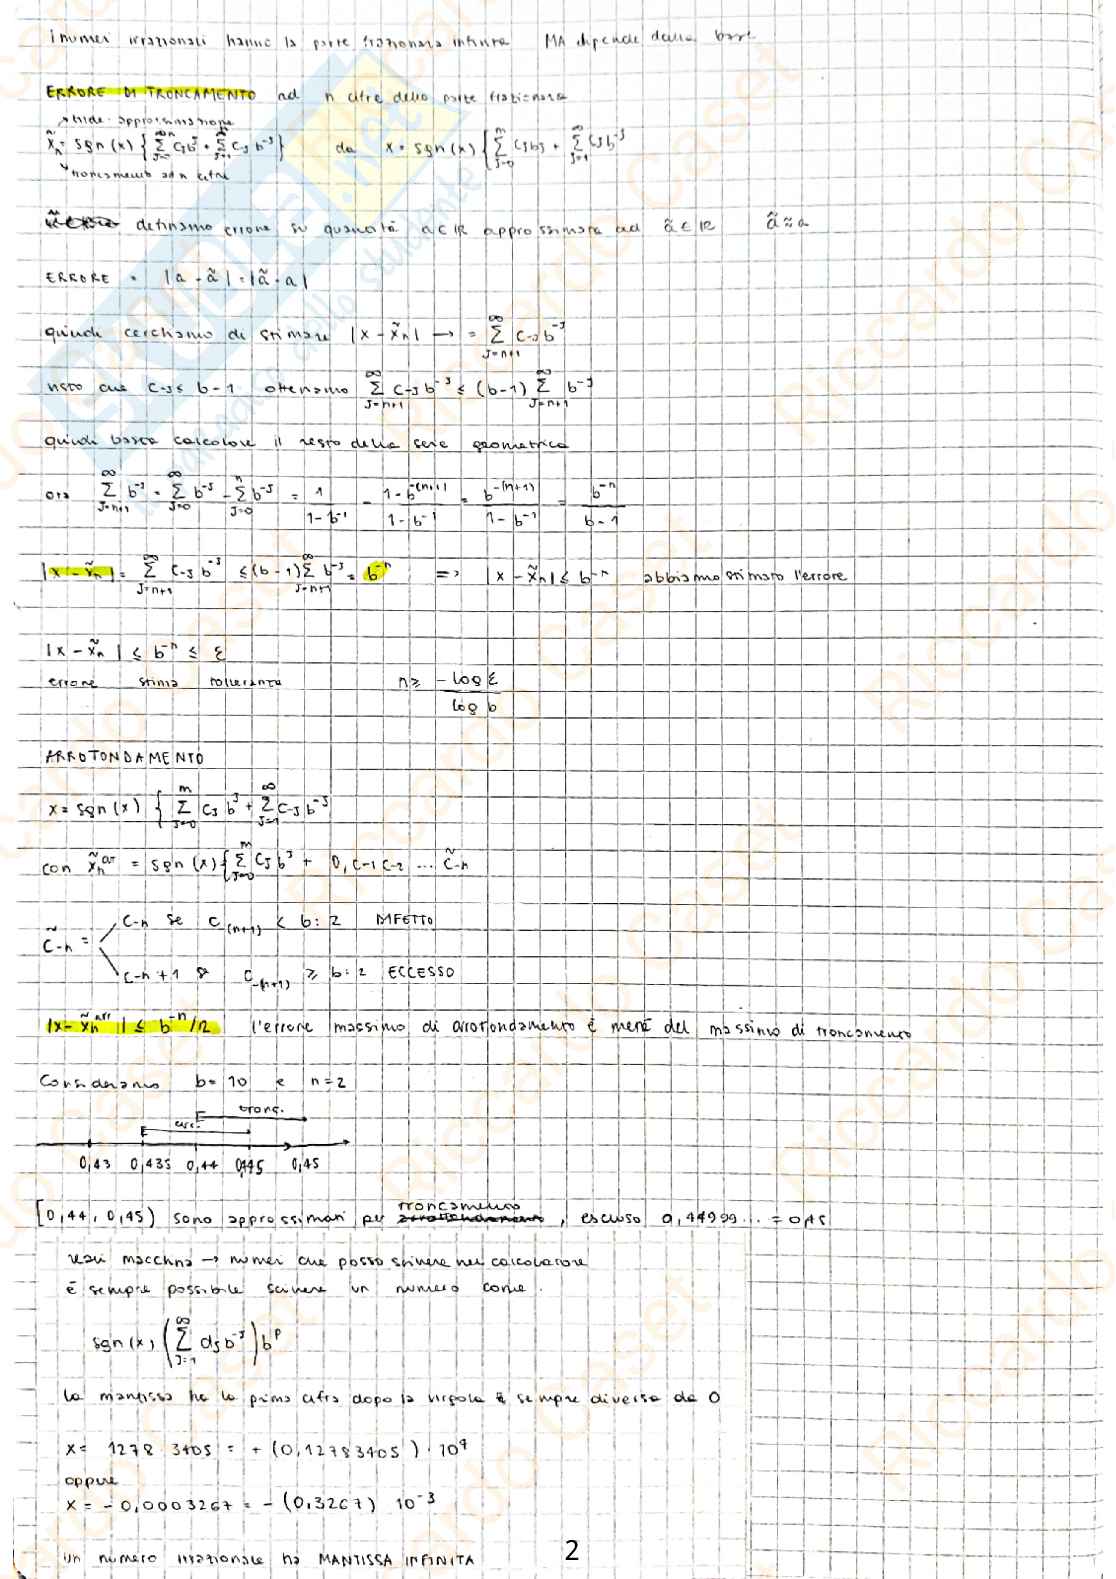 i numeri irrazionali hanno la parte frazionaria infinita MA dipende dalla base
ERRORE DI TRONCAMENTO ad n cifre della parte frazionaria
↗ tilde: approssimazione
x̃ₙ = sgn(x) { Σ cⱼbʲ + Σ c₋ⱼ b⁻ʲ } da x = sgn(x) { Σ_{J=0}^{m} cⱼbʲ + Σ_{J=1}^{∞} c₋ⱼb⁻ʲ
↘ troncamento ad n cifre
definiamo errore su quantità a∈ℝ approssimata ad ã∈ℝ ã≈a
ERRORE = |a - ã| = |ã - a|
quindi cerchiamo di stimare |x - x̃ₙ| → = Σ_{J=n+1}^{∞} c₋ⱼ b⁻ʲ
visto che c₋ⱼ ≤ b-1 otteniamo Σ_{J=n+1}^{∞} c₋ⱼ b⁻ʲ ≤ (b-1) Σ_{J=n+1}^{∞} b⁻ʲ
quindi basta calcolare il resto della serie geometrica
ora Σ_{J=n+1}^{∞} b⁻ʲ = Σ_{J=0}^{∞} b⁻ʲ - Σ_{J=0}^{n} b⁻ʲ = 1/(1-b⁻¹) - (1-b^{-(n+1)})/(1-b⁻¹) = b^{-(n+1)}/(1-b⁻¹) = b⁻ⁿ/(b-1)
|x - x̃ₙ| = Σ_{J=n+1}^{∞} c₋ⱼ b⁻ʲ ≤ (b-1) Σ_{J=n+1}^{∞} b⁻ʲ = b⁻ⁿ => |x - x̃ₙ| ≤ b⁻ⁿ abbiamo stimato l'errore
|x - x̃ₙ| ≤ b⁻ⁿ ≤ ε
errore stima tolleranza n ≥ -log ε / log b
ARROTONDAMENTO
x = sgn(x) { Σ_{J=0}^{m} cⱼ bʲ + Σ_{J=1}^{∞} c₋ⱼ b⁻ʲ
con x̃ₙᵃʳ = sgn(x) { Σ_{J=0}^{m} cⱼ bʲ + 0,c₋₁c₋₂ ... c̃₋ₙ
c̃₋ₙ = c₋ₙ se c₍ₙ₊₁₎ < b:2 DIFETTO
c₋ₙ+1 se c₋₍ₙ₊₁₎ ≥ b:2 ECCESSO
|x - x̃ₙᵃʳʳ| ≤ b⁻ⁿ/2 l'errore massimo di arrotondamento è metà del massimo di troncamento
Consideriamo b=10 e n=2
tronc.
arr.
0,43 0,435 0,44 0,445 0,45
troncamento
[0,44, 0,45) sono approssimati per arrotondamento, escluso 0,44999... = 0,45
reali macchina → numeri che posso scrivere nel calcolatore
è sempre possibile scrivere un numero come:
sgn(x) ( Σ_{J=1}^{∞} dⱼb⁻ʲ ) bᵖ
la mantissa ha la prima cifra dopo la virgola è sempre diversa da 0
x = 1278.3405 = +(0,12783405) · 10⁴
oppure
x = -0,0003267 = -(0,3267) 10⁻³
un numero irrazionale ha MANTISSA INFINITA
2